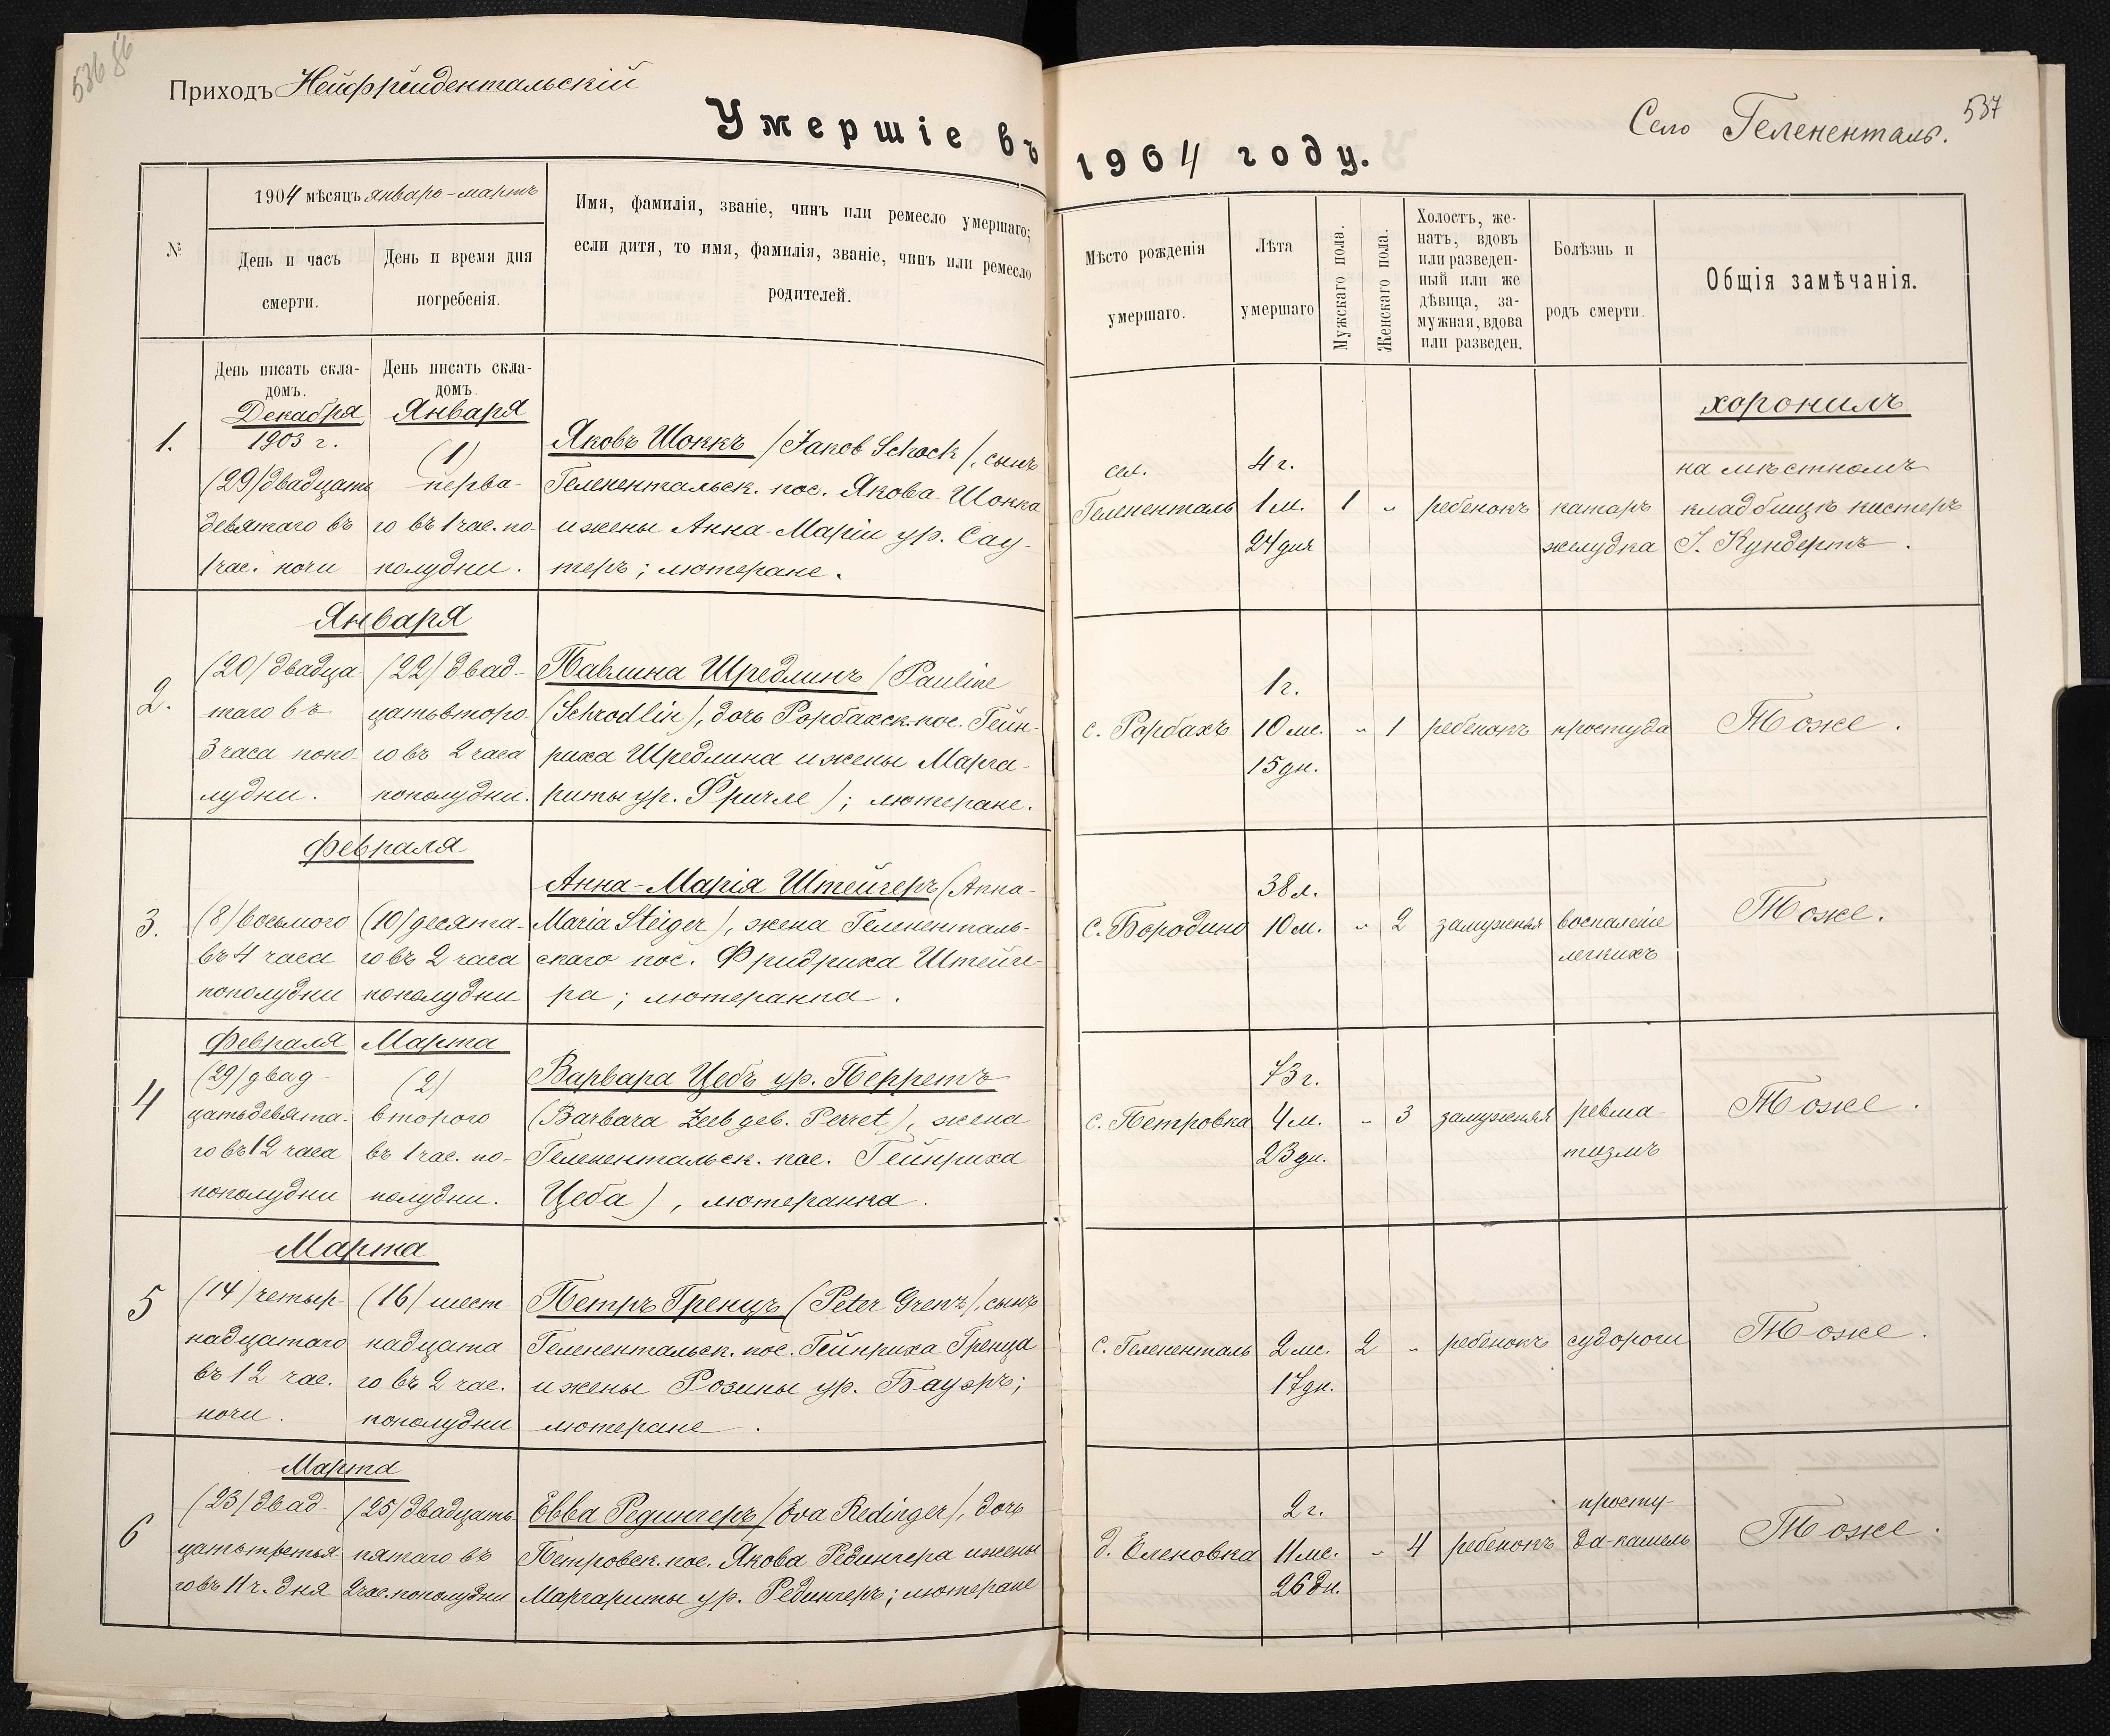 536 86
Приходъ Нейфрейдентальскій
Умершіе въ
№
1904 мѣсяцъ январь-мартъ
День и часъ
смерти.
День и время дня
погребенія.
Имя, фамилія, званіе, чинъ или ремесло умершаго;
если дитя, то имя, фамилія, званіе, чинъ или ремесло
родителей.
День писать скла-
домъ.
День писать скла-
домъ.
1.
Декабря
1903 г.
(29) двадцать
девятаго въ
1 час. ночи
Января
(1)
перва-
го въ 1 час. по-
полудни.
Яковъ Шоккъ (Jakob Schock), сынъ
Геленентальск. пос. Якова Шокка
и жены Анна-Маріи ур. Сау-
теръ; лютеране.
Января
2.
(20) двадца-
таго въ
3 часа попо-
лудни.
(22) двад-
цатьвторо-
го въ 2 часа
пополудни.
Павлина Шредлинъ (Pauline
(Schrodlin), дочь Рорбахск. пос. Гейн-
риха Шредлина и жены Марга-
риты ур. Фричле); лютеране.
Февраля
3.
(8) восьмого
въ 4 часа
пополудни
(10) десята-
го въ 2 часа
пополудни
Анна-Марія Штейгеръ (Anna-
Maria Steiger), жена Гелененталь-
скаго пос. Фридриха Штейге-
ра; лютеранка.
4
Февраля
(29) двад-
цатьдевята-
го въ 12 часа
пополудни
Марта
(2)
второго
въ 1 час. по-
полудни.
Варвара Цебъ ур. Перретъ
(Barbara Zeeb geb. Perret), жена
Геленентальск. пос. Гейнриха
Цеба), лютеранка.
Марта
5
(14) четыр-
надцатаго
въ 12 час.
ночи.
(16) шест-
надцата-
го въ 2 час.
пополудни
Петръ Гренцъ (Peter Grenz), сынъ
Геленентальск. пос. Гейнриха Гренца
и жены Розины ур. Бауэръ;
лютеране.
Марта
6
(23) двад-
цатьтретья-
го въ 11 ч. дня
(25) двадцать
пятаго въ
2 час. пополудни
Евва Редингеръ (Eva Redinger), дочь
Петровск. пос. Якова Редингера и жены
Маргариты ур. Редингеръ; лютеране
537
Село Гелененталь.
1904 году.
Мѣсто рожденія
умершаго.
Лѣта
умершаго
Мужскаго пола.
Женскаго пола.
Холостъ, же-
натъ, вдовъ
или разведен-
ный или же
дѣвица, за-
мужная, вдова
или разведен.
Болѣзнь и
родъ смерти.
Общія замѣчанія.
хоронилъ
сел.
Гелененталь
4 г.
1 м.
24 дня
1
"
ребенокъ
катаръ
желудка
на мѣстномъ
кладбищѣ кистеръ
І. Кундертъ.
с. Рорбахъ
1 г.
10 мс.
15 дн.
"
1
ребенокъ
простуда
Тоже.
с. Бородино
38 л.
10 м.
"
2
замужняя
воспаленіе
легкихъ
Тоже.
с. Петровка
73 г.
4 м.
23 дн.
"
3
замужняя
ревма-
тизмъ
Тоже.
с. Гелененталь
2 мс.
17 дн.
2
"
ребенокъ
судороги
Тоже.
д. Еленовка
2 г.
11 мс.
26 дн.
"
4
ребенокъ
просту-
да-кашель
Тоже.